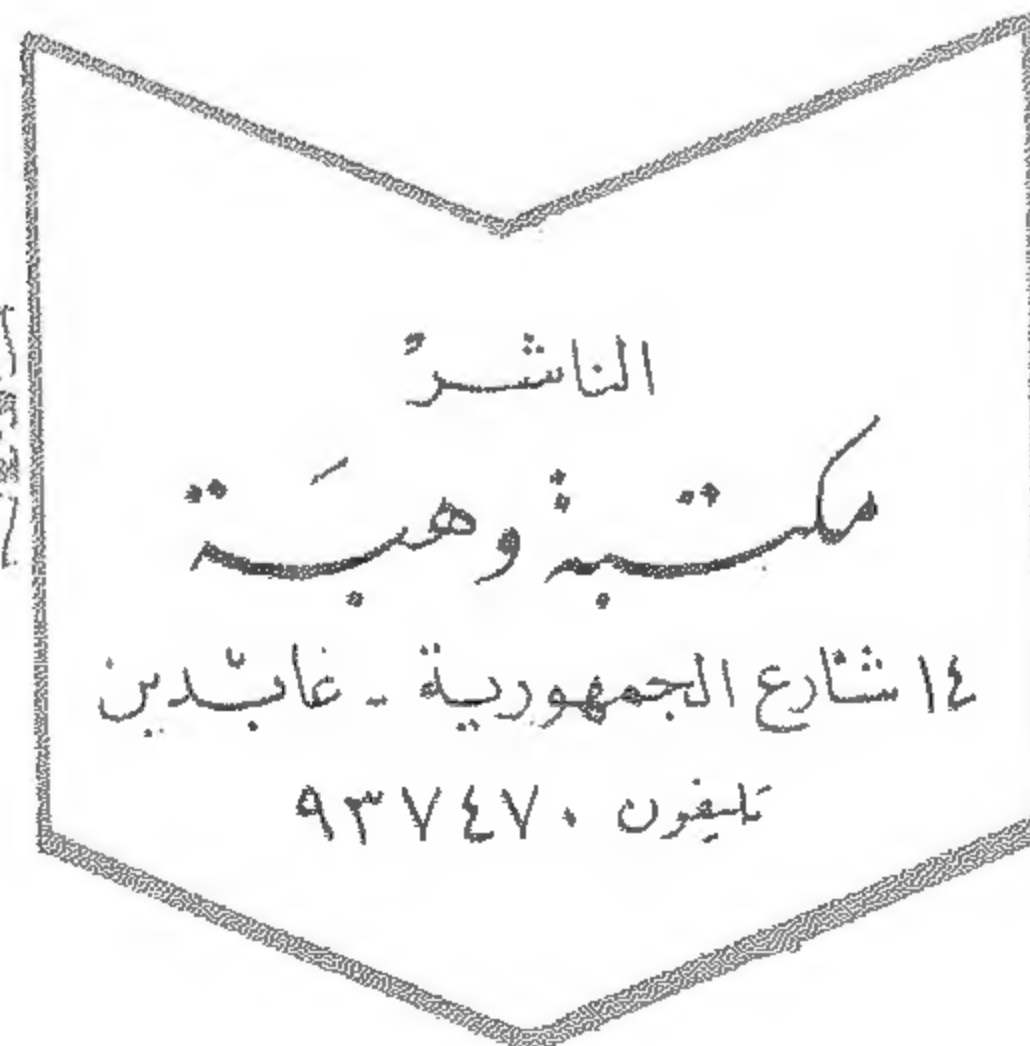 الناشر
مكتبة وهبَة
١٤ شارع الجمهورية - عابدين
تليفون ٩٣٧٤٧٠